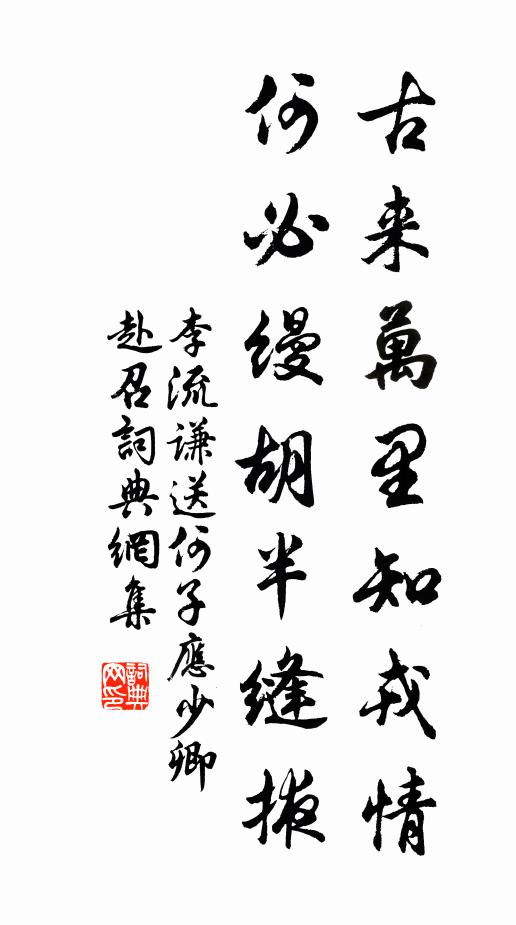 古来萬里知戎情
何必縵胡半縫掖
李流謙送何子應少卿
赴召詞典網集
詞典网印